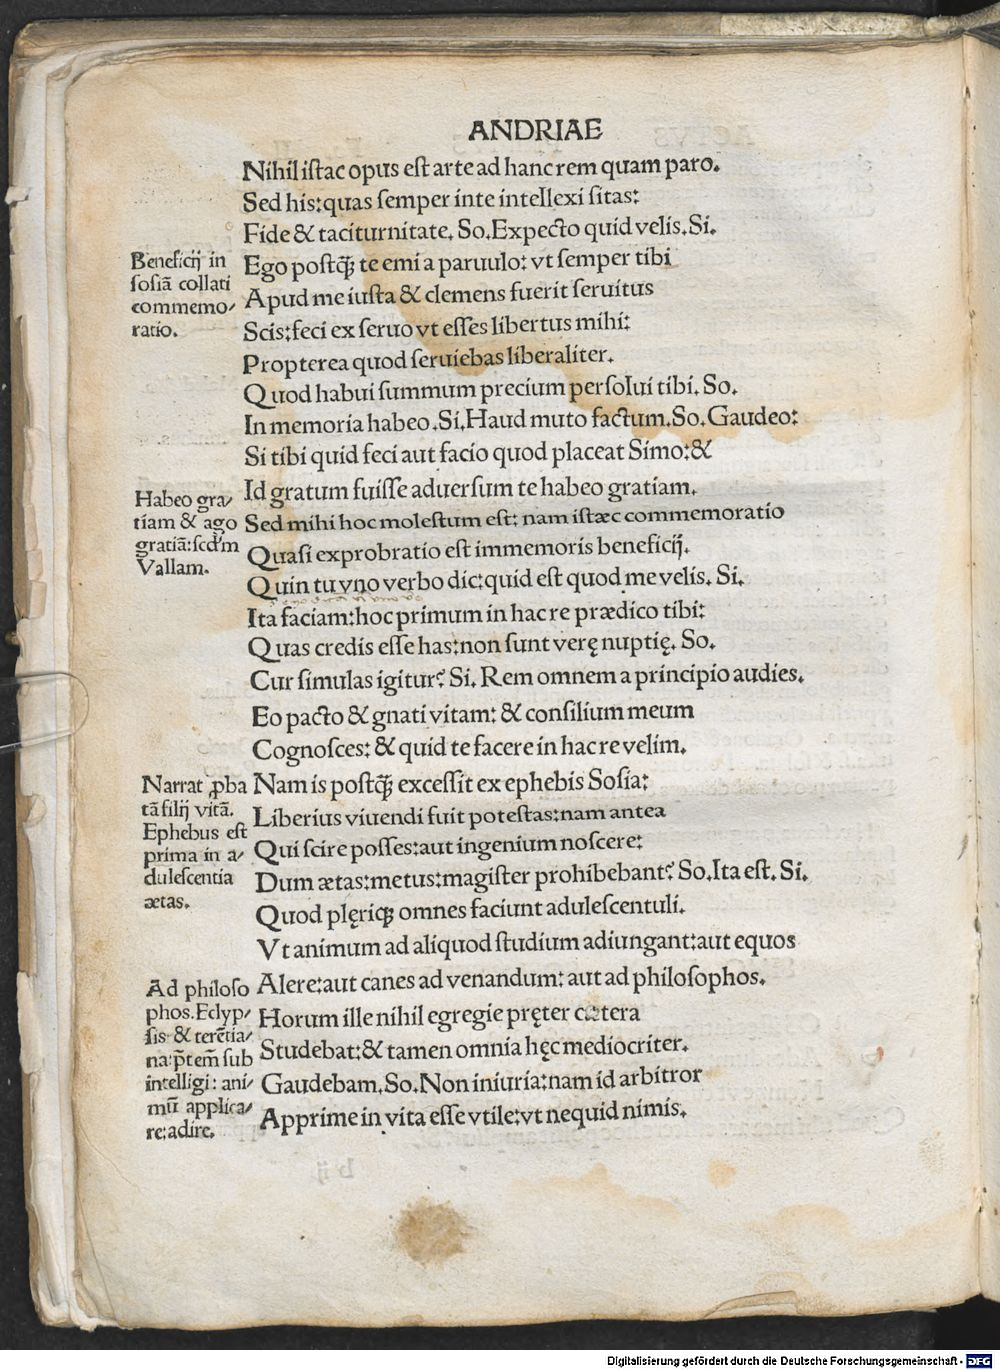 ANDRIAE
Nihil iſtac opus eſt arte ad hanc rem quam paro.
Sed his: quas ſemper in te intellexi ſitas:
Fide & taciturnitate. So. Expecto quid velis. Si.
Beneficij in
ſoſiā collati
commemo/
ratio.
Ego poſtꝙ̃ te emi a paruulo: vt ſemper tibi
Apud me iuſta & clemens fuerit ſeruitus
Scis: feci ex ſeruo vt eſſes libertus mihi:
Propterea quod ſeruiebas liberaliter.
Quod habui ſummum precium perſolui tibi. So.
In memoria habeo. Si. Haud muto factum. So. Gaudeo:
Si tibi quid feci aut facio quod placeat Simo: &
Id gratum fuiſſe aduerſum te habeo gratiam.
Habeo gra/
tiam & ago
gratiā: ſcd'm
Vallam.
Sed mihi hoc moleſtum eſt: nam iſtæc commemoratio
Quaſi exprobratio eſt immemoris beneficij.
Quin tu vno verbo dic: quid eſt quod me velis. Si.
Ita faciam: hoc primum in hac re prædico tibi:
Quas credis eſſe has: non ſunt verę nuptię. So.
Cur ſimulas igitur? Si. Rem omnem a principio audies.
Eo pacto & gnati vitam: & conſilium meum
Cognoſces: & quid te facere in hac re velim.
Narrat ꝓba
tā filij vitā.
Ephebus eſt
prima in a/
duleſcentia
ætas.
Nam is poſtꝙ̃ exceſſit ex ephebis Soſia:
Liberius viuendi fuit poteſtas: nam antea
Qui ſcire poſſes: aut ingenium noſcere:
Dum ætas: metus: magiſter prohibebant? So. Ita eſt. Si.
Quod plęriqꝫ omnes faciunt aduleſcentuli.
Vt animum ad aliquod ſtudium adiungant: aut equos
Alere: aut canes ad venandum: aut ad philoſophos.
Ad philoſo
phos. Eclyp/
ſis & terētia/
na: p̄tem̄ ſub
intelligi: ani/
mū applica/
re: adire.
Horum ille nihil egregie pręter cætera
Studebat: & tamen omnia hęc mediocriter.
Gaudebam. So. Non iniuria: nam id arbitror
Apprime in vita eſſe vtile: vt nequid nimis.
Digitalisierung gefördert durch die Deutsche Forschungsgemeinschaft - DFG